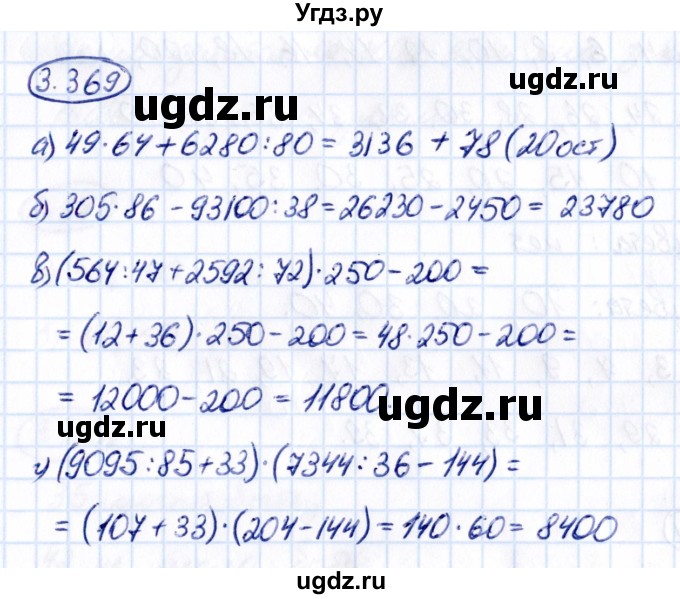 Угдз.ру
3.369
ugdz.ru
ugdz.ru
а) 49·64+6280:80= 3136 + 78(20ост)
б) 305·86 -93100:38=26230-2450= 23780
ugdz.ru
в) (564:47+2592:72)·250-200=
= (12+36)·250-200=48·250-200=
= 12000-200 = 11800.
ugdz.ru
ugdz.ru
г) (9095:85+33)·(7344:36-144)=
= (107+33)·(204-144)=140·60= 8400
ugdz.ru
ugdz.ru